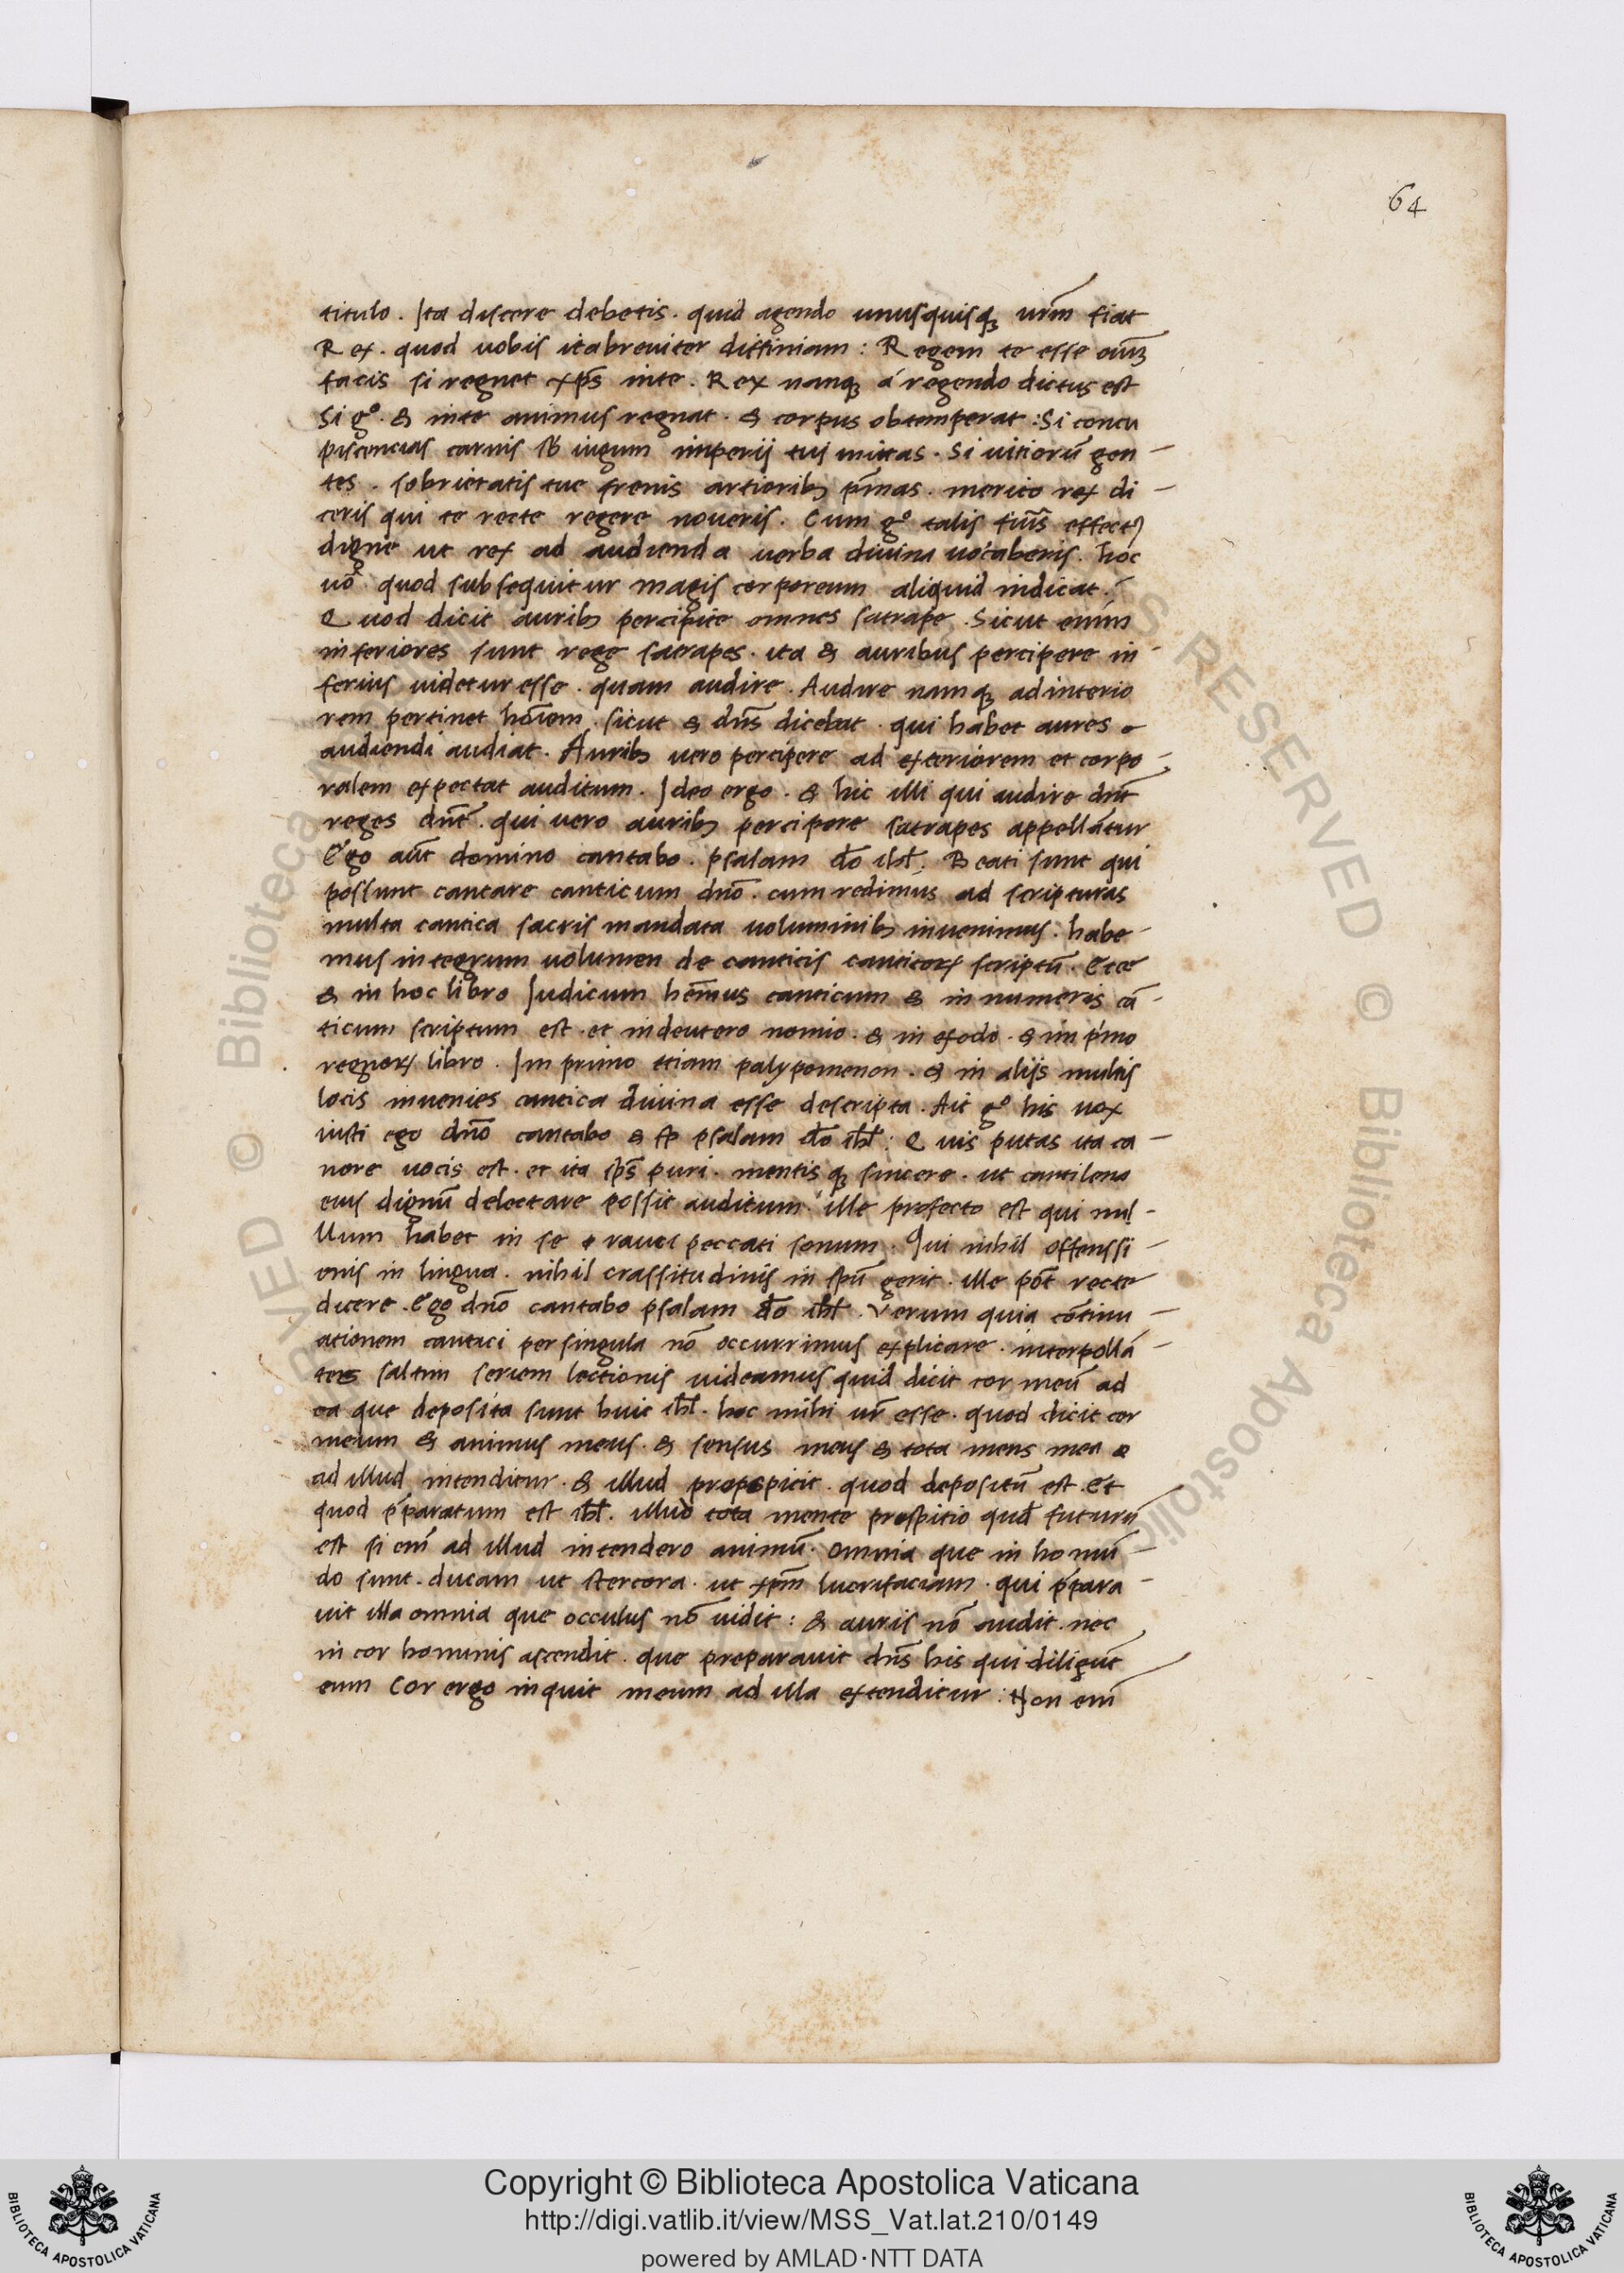 64
titulo . Ita discere debetis . quid agendo unusquisq; ur̄m fiat
Rex . quod uobis ita breuiter diffiniam : Regem te esse oīuʒ
facis si regnet xp̄s inte . Rex nanq; á regendo dictus est
Si g° . & inte animus regnat . & corpus obtemperat : Si concu
piscencias carnis sb̄ iugum imperij tui mittas . Si uitiorū gen -
tes . sobrietatis tue frenis artiorib; p̄mas . merito rex di -
ceris qui te recte regere noueris . Cum g° talis fūis effect9
digne ut rex ad audienda uerba diuina uocaberis . hoc
uō quod subsequitur magis corporeum aliquid indicat .
Quod dicit aurib; percipite omnes satrape . Sicut enim
inferiores sunt rege satrapes . ita & auribus percipere in -
ferius uidetur esse . quam audire . Audire namq; ad interio
rem pertinet hōiem . sicut & dn̄s dicebat . qui habet aures
audiendi audiat . Aurib; uero percipere ad exteriorem et corpo -
ralem expectat auditum . Ideo ergo . & hic illi qui audire dn̄t
reges dn̄t . qui uero aurib; percipere satrapes appellātur
Ego aūt domino cantabo . psalam dō isrl̄ . Beati sunt qui
possunt cantare canticum dnō . cum redimus ad scripturas
multa cantica sacris mandata uoluminib; inuenimus . habe -
mus integrum uolumen de canticis canticoꝝ scriptū . Ecce
& in hoc libro Iudicum hēmus canticum & in numeris cā -
ticum scriptum est . et in deutero nomio . & in exodo . & in p̄mo
regnoꝝ libro . In primo etiam palypomenon . & in alijs multis
locis inuenies cantica diuina esse descripta . Ait g° his uox
iusti ego dnō cantabo & psalam dō isrl̄ : Quis putas ita ca -
nore uocis est . et ita sp̄s puri . mentis q; sincere . ut cantilena
eius dignū delectare possit auditum . ille profecto est qui nul -
llum habet in se rauci peccati sonum . Qui nihil offenssi -
onis in lingua . nihil crassitudinis in spū gerit . ille pōt recte
dicere . Ego dnō cantabo psalam dō isrl̄ . Verum quia cōtinu -
ationem cantici per singula nō occurrimus explicare . interpollā -
tes saltim seriem lectionis uideamus quid dicit cor meū ad
ea que deposita sunt huic isrl̄ . hoc mihi ur̄ esse . quod dicit cor
meum & animus meus . & sensus meus & tota mens mea
ad illud intenditur . & illud prospicit . quod depositū est . Et
quod p̄paratum est isrl̄ . illud tota mente prospitio quod futurū
est si em̄ ad illud intendero animū . omnia que in ho mū -
do sunt . ducam ut stercora . ut xpm̄ lucrifaciam . qui p̄para -
uit illa omnia que occulus nō uidit : & auris nō audit . nec
in cor hominis ascendit . que preparauit dn̄s his qui diligūt
eum Cor ergo inquit meum ad illa extenditur : Non em̄
Copyright © Biblioteca Apostolica Vaticana
http://digi.vatlib.it/view/MSS_Vat.lat.210/0149
powered by AMLAD·NTT DATA